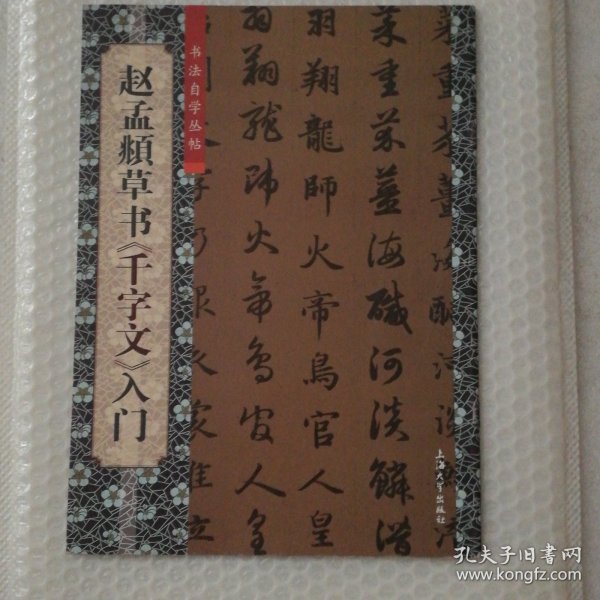 赵孟頫草书《千字文》入门
书法自学丛帖
菜重芥薑海鹹河淡鱗潛
羽翔龍師火帝鳥官人皇
羽翔龍師火帝鳥官人皇
上海大学出版社
孔夫子旧书网
www.kongfz.com